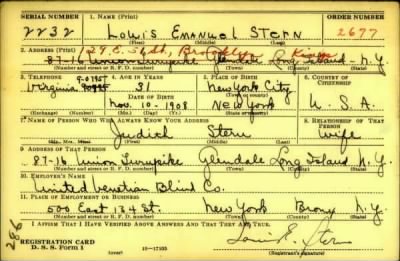 SERIAL NUMBER 1. NAME (Print) ORDER NUMBER
2232 Louis Emanuel Stern 2677
(First) (Middle) (Last)
2. ADDRESS (Print) 129 E. 56th, Brooklyn Kings
87-16 Union Turnpike Glendale Long Island N.Y.
(Number and street or R. F. D. number) (Town) (County) (State)
3. TELEPHONE 4. AGE IN YEARS 5. PLACE OF BIRTH 6. COUNTRY OF CITIZENSHIP
9-0195
Virginia 31 New York City
DATE OF BIRTH
Nov. 10 - 1908 New York U.S.A.
(Exchange) (Number) (Mo.) (Day) (Yr.) (State or country)
7. NAME OF PERSON WHO WILL ALWAYS KNOW YOUR ADDRESS 8. RELATIONSHIP OF THAT PERSON
Judith Stern Wife
(Mr., Mrs., Miss) (First) (Middle) (Last)
9. ADDRESS OF THAT PERSON
87-16 Union Turnpike Glendale Long Island N.Y.
(Number and street or R. F. D. number) (Town) (County) (State)
10. EMPLOYER'S NAME
United Venetian Blind Co.
11. PLACE OF EMPLOYMENT OR BUSINESS
500 East 134 St. New York Bronx N.Y.
(Number and street or R. F. D. number) (Town) (County) (State)
I AFFIRM THAT I HAVE VERIFIED ABOVE ANSWERS AND THAT THEY ARE TRUE.
286
REGISTRATION CARD
D. S. S. Form 1 16—17105 Louis E. Stern
(Registrant's signature)